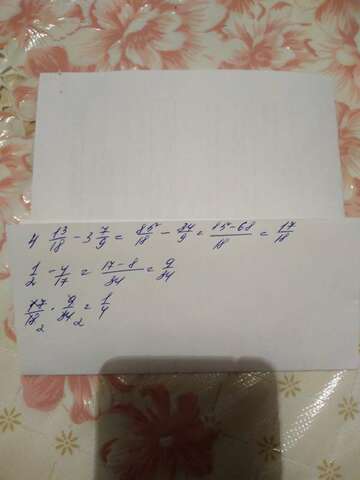 4 13/18 - 3 7/9 = 85/18 - 34/9 = 85-68/18 = 17/18
1/2 - 4/17 = 17-8/34 = 9/34
17/18 · 9/34 = 1/4
2 2